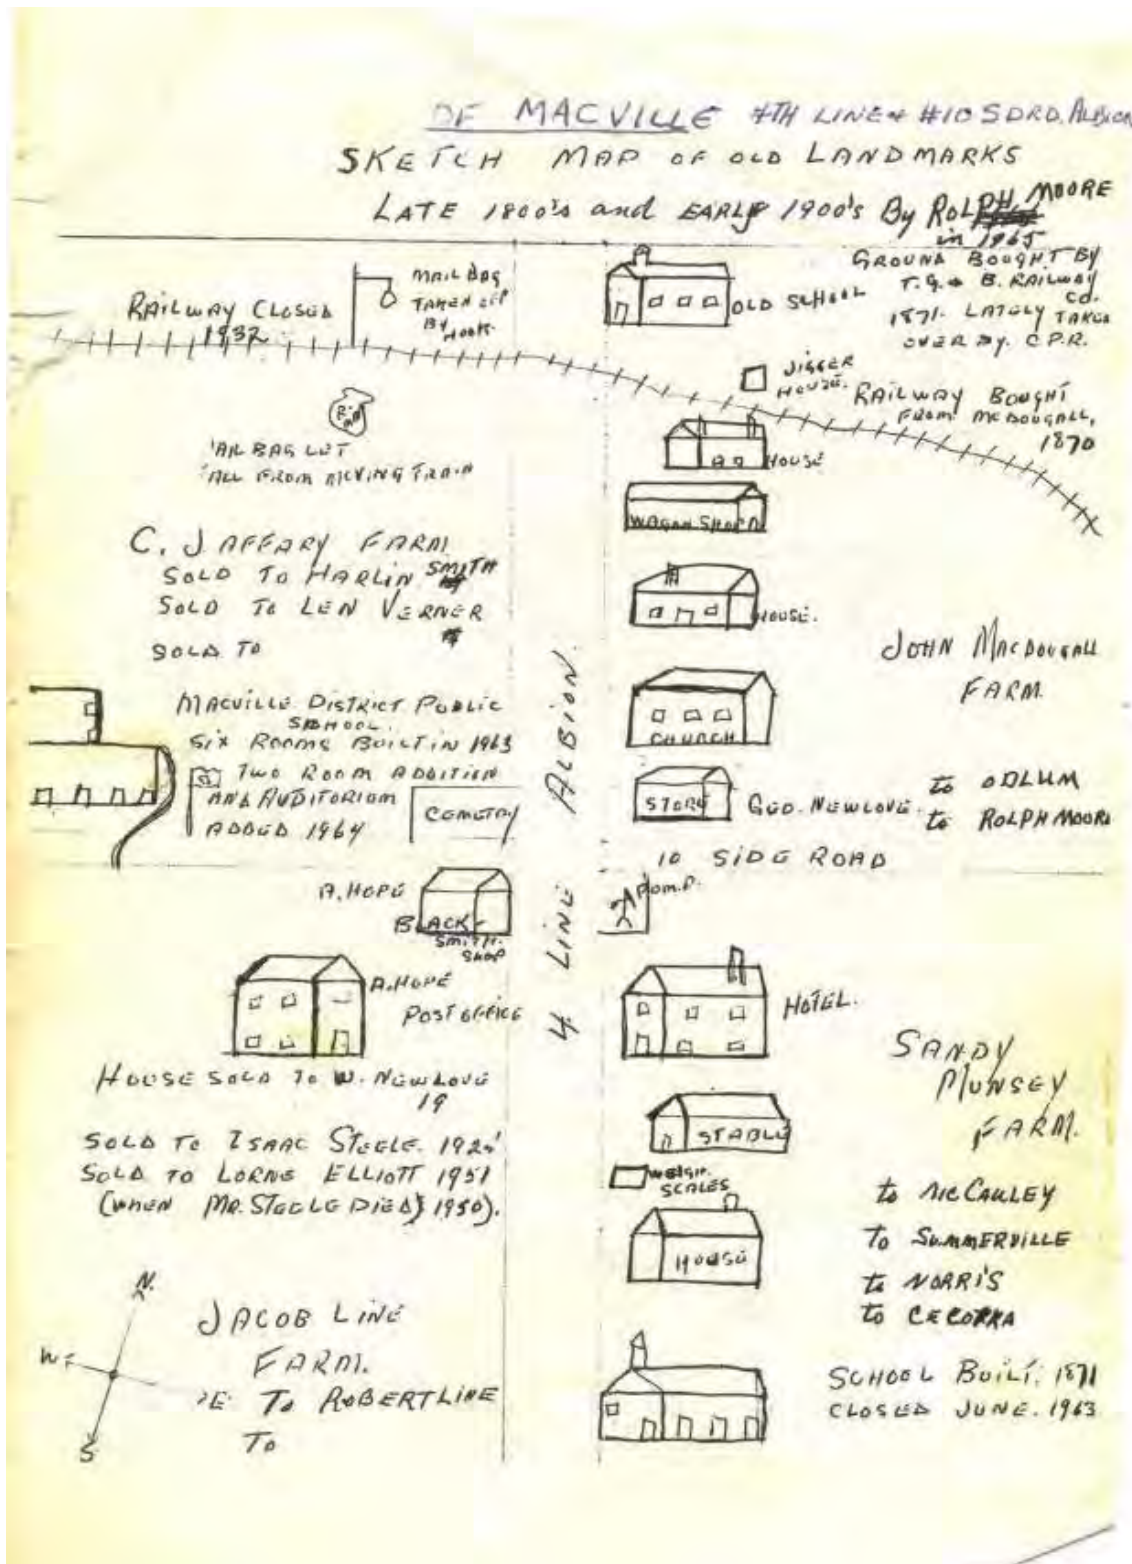 OF MACVILLE 4TH LINE & #10 SDRD. ALBION
SKETCH MAP OF OLD LANDMARKS
LATE 1800's and EARLY 1900's By ROLPH MOORE
in 1965
GROUND BOUGHT BY
T.G. & B. RAILWAY
CO.
1871. LATELY TAKEN
OVER BY. C.P.R.
MAIL BAG
TAKEN OFF
BY
HOOK.
RAILWAY CLOSED
1932
OLD SCHOOL
JIGGER
HOUSE.
RAILWAY BOUGHT
FROM McDOUGALL,
1870
'AIL BAG LET
'ALL FROM MOVING TRAIN
HOUSE
WAGON SHOP
C. JAFFARY FARM
SOLD TO HARLIN SMITH
SOLD TO LEN VERNER
SOLD TO
HOUSE.
JOHN MACDOUGALL
FARM.
MACVILLE DISTRICT PUBLIC
SCHOOL.
SIX ROOMS BUILT IN 1963
TWO ROOM ADDITION
AND AUDITORIUM
ADDED 1964
CEMETRY
CHURCH
STORE
GEO. NEWLOVE.
to ODLUM
to ROLPH MOORE
10 SIDE ROAD
4 LINE ALBION.
A. HOPE
BLACK-
SMITH.
SHOP
PUMP.
A. HOPE
POST OFFICE
HOTEL.
HOUSE SOLD TO W. NEWLOVE
19
SOLD TO ISAAC STEELE. 1925
SOLD TO LORNE ELLIOTT 1951
(WHEN MR. STEELE DIED) 1950).
SANDY
MUNSEY
FARM.
STABLE
WEIGH.
SCALES
HOUSE
to McCAULEY
to SUMMERVILLE
to NORRIS
to
N.
W
S
JACOB LINE
FARM.
TO ROBERT LINE
TO
SCHOOL BUILT. 1871
CLOSED JUNE. 1963